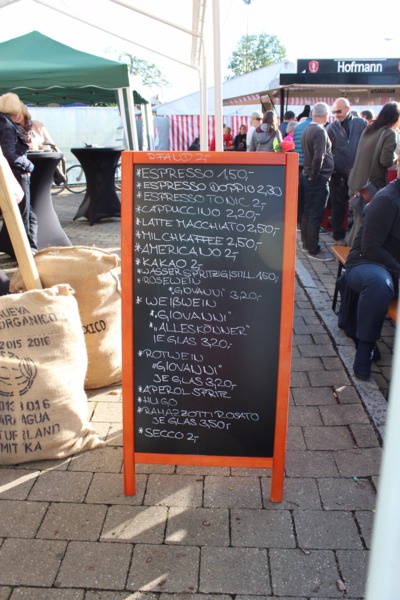 Hofmann
PFAND 2,-
*ESPRESSO 1,50,-
*ESPRESSO DOPPIO 2,30
*ESPRESSO TONIC 2,-
*CAPPUCCINO 2,20,-
*LATTE MACCHIATO 2,50,-
*MILCHKAFFEE 2,50,-
*AMERICANO 2,-
*KAKAO 2,-
*WASSER SPRITZIG/STILL 1,50,-
*ROSEWEIN
*"GIOVANNI" 3,20,-
*WEIßWEIN
*"GIOVANNI"
*"ALLESKÖNNER"
JE GLAS 3,20,-
*ROTWEIN
"GIOVANNI"
JE GLAS 3,20,-
*APEROL SPRITZ
*HUGO
*RAMAZZOTTI ROSATO
JE GLAS 3,50,-
*SECCO 2,-
NUEVA
ORGANICO
2015 2016
MEXICO